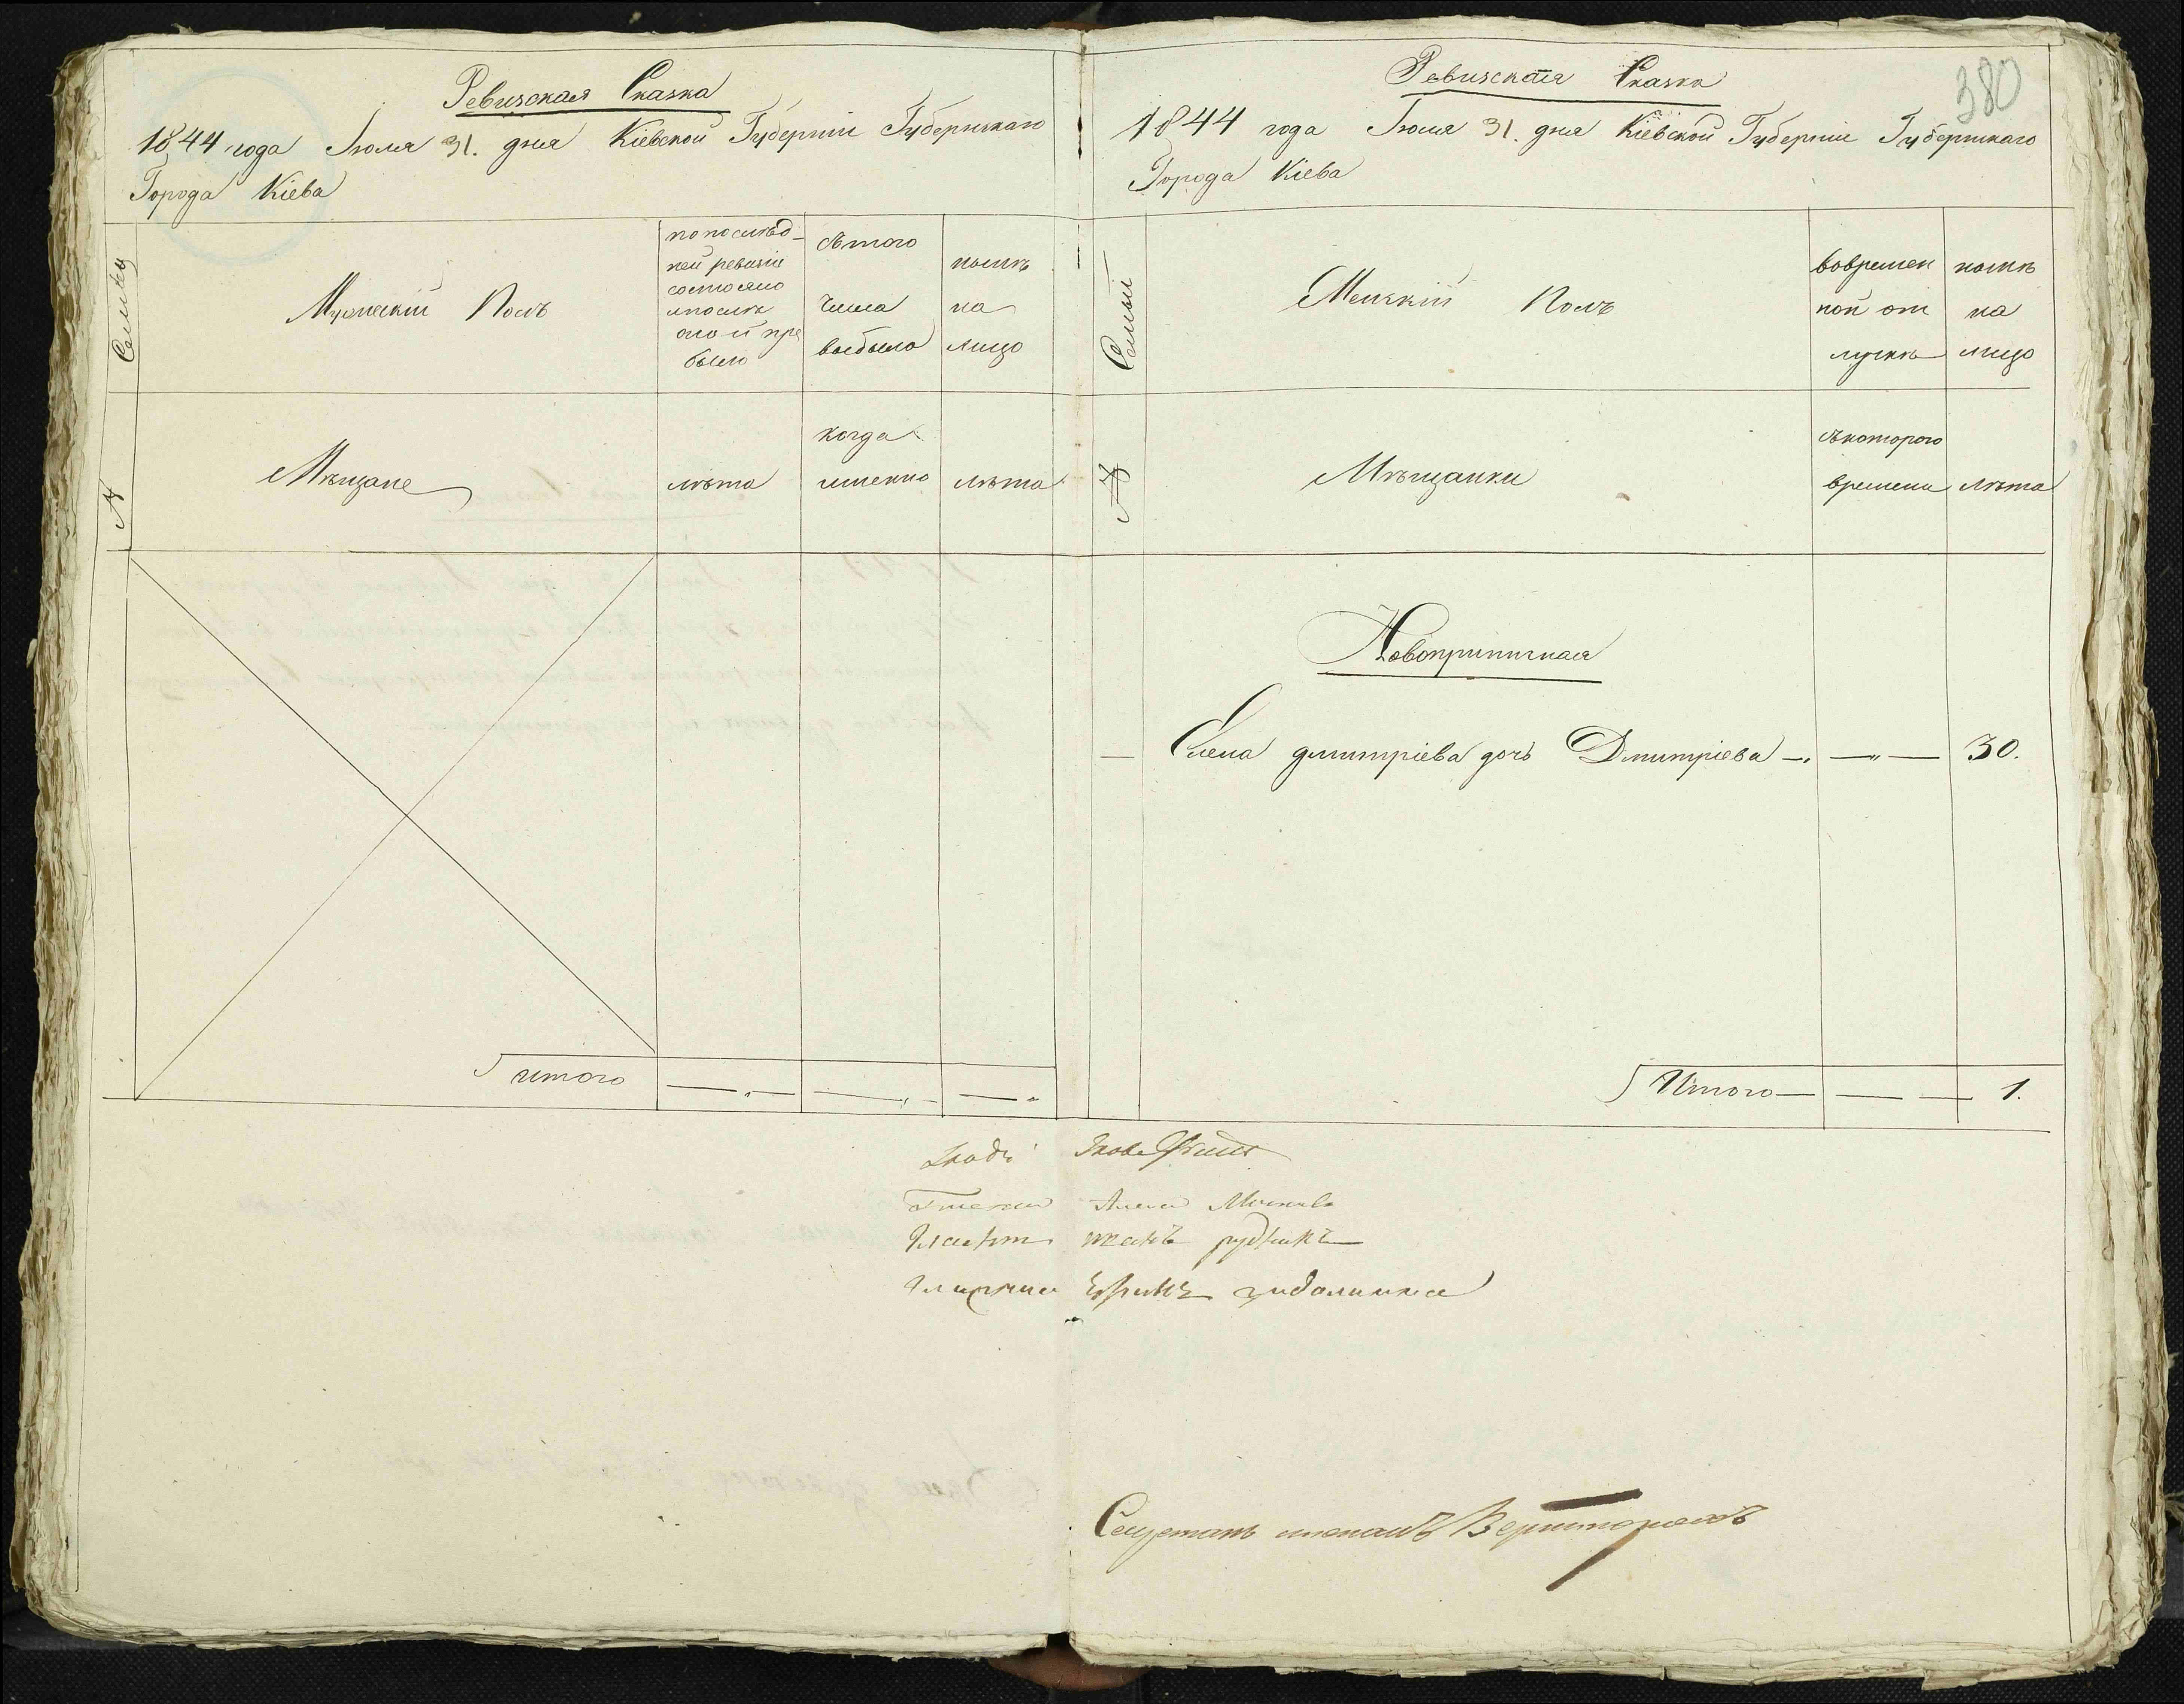 Ревизская Сказка
1844 года Июля 31. дня Кіевской Губерніи Губернскаго
Города Кіева
Семьи
Мужескій Полъ
по послѣд-
ней ревизіи
состояло
и после
оной при
было
съ того
числа
выбыло
нынѣ
на
лицо
№
Мѣщане
лѣта
когда
именно
лѣта
Итого
380
Ревизская Сказка
1844 года Июля 31. дня Кіевской Губерніи Губернскаго
Города Кіева
Семьи
Женскій Полъ
вовремен
ной от
лучкѣ
нынѣ
на
лицо
№
Мѣщанки
съ котораго
времени
лѣта
Новоприписная
Елена дмитріева дочь Дмитріева 30.
Итого 1.
иванъ рудникъ